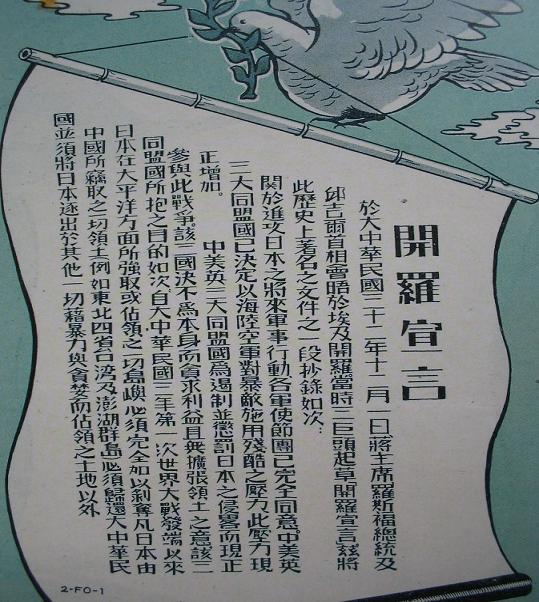 開羅宣言
於大中華民國三十二年十二月一日蔣主席羅斯福總統及
邱吉爾首相會晤於埃及開羅當時三巨頭起草開羅宣言茲將
此歷史上著名之文件之一段抄錄如次：
關於進攻日本之將來軍事行動各軍使節團已完全同意中美英
三大同盟國已決定以海陸空軍對暴敵施用殘酷之壓力此壓力現
正增加。　中美英三大同盟國為遏制並懲罰日本之侵畧而現正
參與此戰爭。該三國決不為本身而貪求利益且無擴張領土之意該三
同盟國所抱之目的如次自大中華民國三年第一次世界大戰發端以來
日本在太平洋方面所強取或佔領之一切島嶼必須完全加以剝奪凡日本由
中國所竊取之一切領土例如東北四省台湾及澎湖群島必須歸還大中華民
國並須將日本逐出於其他一切藉暴力與貪婪而佔領之土地以外
2-FO-1